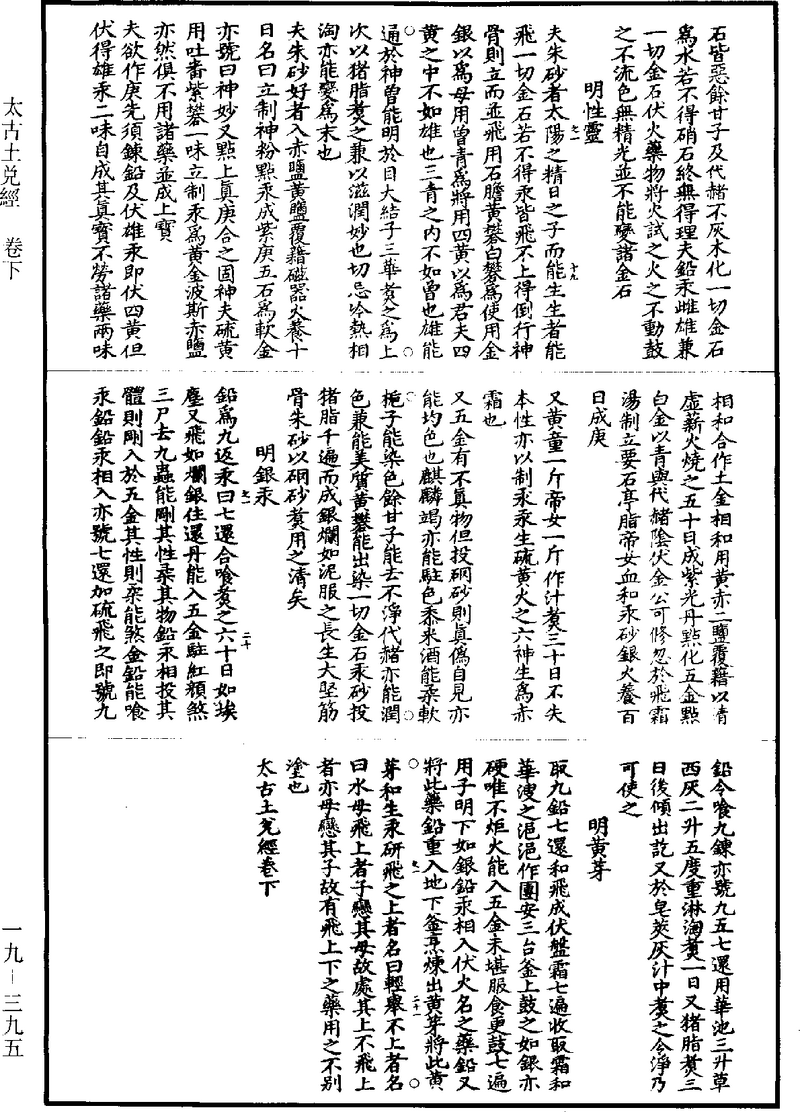 石皆惡餘甘子及代赭不灰木化一切金石
為水若不得硝石終無得理夫鉛汞雌雄兼
一切金石伏火藥物將火試之火之不動鼓
之不流色無精光並不能變諸金石
明性靈
夫朱砂者太陽之精日之子而能生生者能
飛一切金石若不得汞皆飛不上得倒行神
骨則立而並飛用石膽黃礬白礬為使用金
銀以為母用曾青為將用四黃以為君夫四
黃之中不如雄也三青之內不如曾也雄能
通於神曾能明於目大結子三華煑之為上
次以猪脂煑之兼以滋潤妙也切忌冷熱相
淘亦能變為末也
夫朱砂好者入赤鹽黃鹽覆藉磁器火養十
日名曰立制神粉點汞成紫庚五石為軟金
亦號曰神妙又點上真庚合之固神夫硫黃
用吐番紫礬一味立制汞為黃金波斯赤鹽
亦然俱不用諸藥並成上寶
夫欲作庚先須鍊鉛及伏雄汞即伏四黃但
伏得雄汞二味自成其真寶不勞諸藥兩味
相和合作土金相和用黃赤二鹽覆藉以清
虛薪火燒之五十日成紫光丹點化五金點
白金以青與代赭陰伏金公可修忽於飛霜
湯制立要石亭脂帝女血和汞砂銀火養百
日成庚
又黃童一斤帝女一斤作汁煑三十日不失
本性亦以制汞汞生硫黃火之六神生為赤
霜也
又五金有不真物但投硇砂則真偽自見亦
能均色也麒麟竭亦能駐色黍米酒能柔軟
梔子能染色餘甘子能去不淨代赭亦能潤
色兼能美質黃礬能出染一切金石汞砂投
猪脂千遍而成銀爛如泥服之長生大堅筋
骨朱砂以硇砂煑用之清矣
明銀汞
鉛為九返汞曰七還合喰煑之六十日如埃
塵又飛如爛銀住還丹能入五金駐紅顏煞
三尸去九蟲能剛其性柔其物鉛汞相投其
體則剛入於五金其性則柔能煞金鉛能喰
汞鉛鉛汞相入亦號七還加硫飛之即號九
鉛令喰九鍊亦號九五七還用華池三升草
西灰二升五度重淋淘煑一日又猪脂煑三
日後傾出訖又於皂莢灰汁中煑之令淨乃
可使之
明黃芽
取九鉛七還和飛成伏盤霜七遍收取霜和
華溲之浥浥作團安三台釜上鼓之如銀亦
硬唯不炬火能入五金未堪服食更鼓七遍
用子明下如銀鉛汞相入伏火名之藥鉛又
將此藥鉛重入地下釜烹煉出黃芽將此黃
芽和生汞研飛之上者名曰輕舉不上者名
曰水母飛上者子戀其母故處其上不飛上
者亦母戀其子故有飛上下之藥用之不別
塗也
太古土兌經卷下
太古土兌經 卷下
一九－三九五